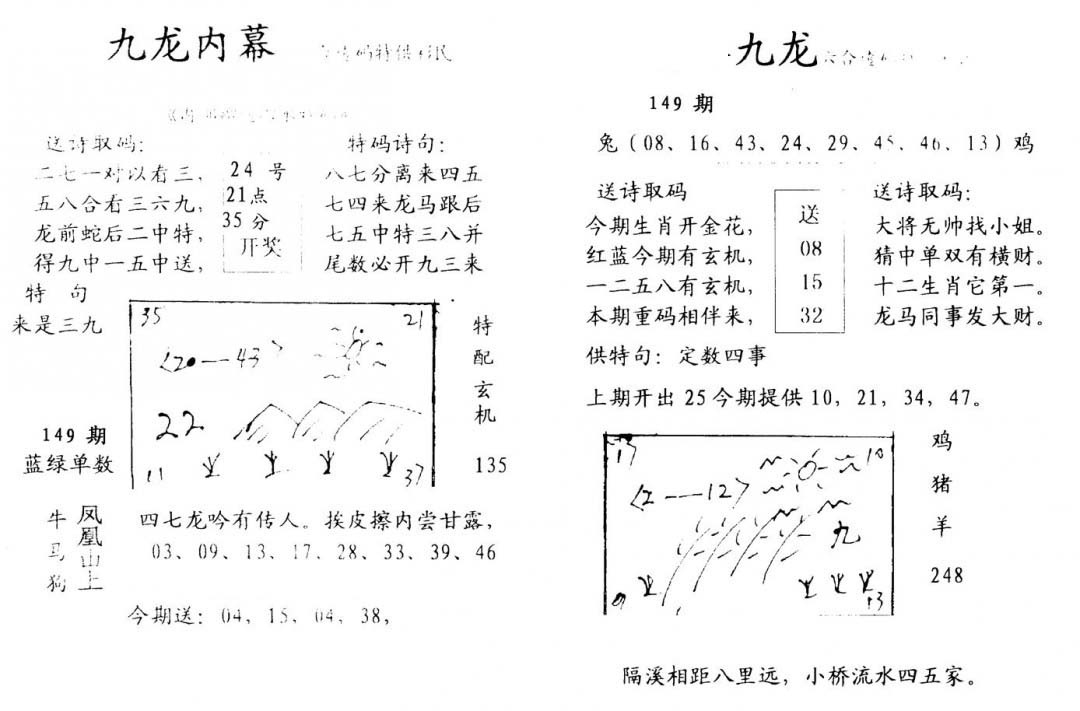 九龙内幕
送诗取码：
二七一对以看三，
五八合看三六九，
龙前蛇后二中特，
得九中一五中送，
24 号
21点
35 分
开奖
特码诗句：
八七分离来四五
七四来龙马跟后
七五中特三八并
尾数必开九三来
特 句
来是三九
35
21
<20—43>
22
11
37
特
配
玄
机
135
149 期
蓝绿单数
牛
马
狗
凤凰山上
四七龙吟有传人。挨皮擦内尝甘露，
03、09、13、17、28、33、39、46
今期送：04，15，04，38，
九龙
149 期
兔（08、16、43、24、29、45、46、13）鸡
送诗取码
今期生肖开金花，
红蓝今期有玄机，
一二五八有玄机，
本期重码相伴来，
送
08
15
32
送诗取码：
大将无帅找小姐。
猜中单双有横财。
十二生肖它第一。
龙马同事发大财。
供特句：定数四事
上期开出 25 今期提供 10，21，34，47。
10
<2—12>
九
鸡
猪
羊
248
隔溪相距八里远，小桥流水四五家。